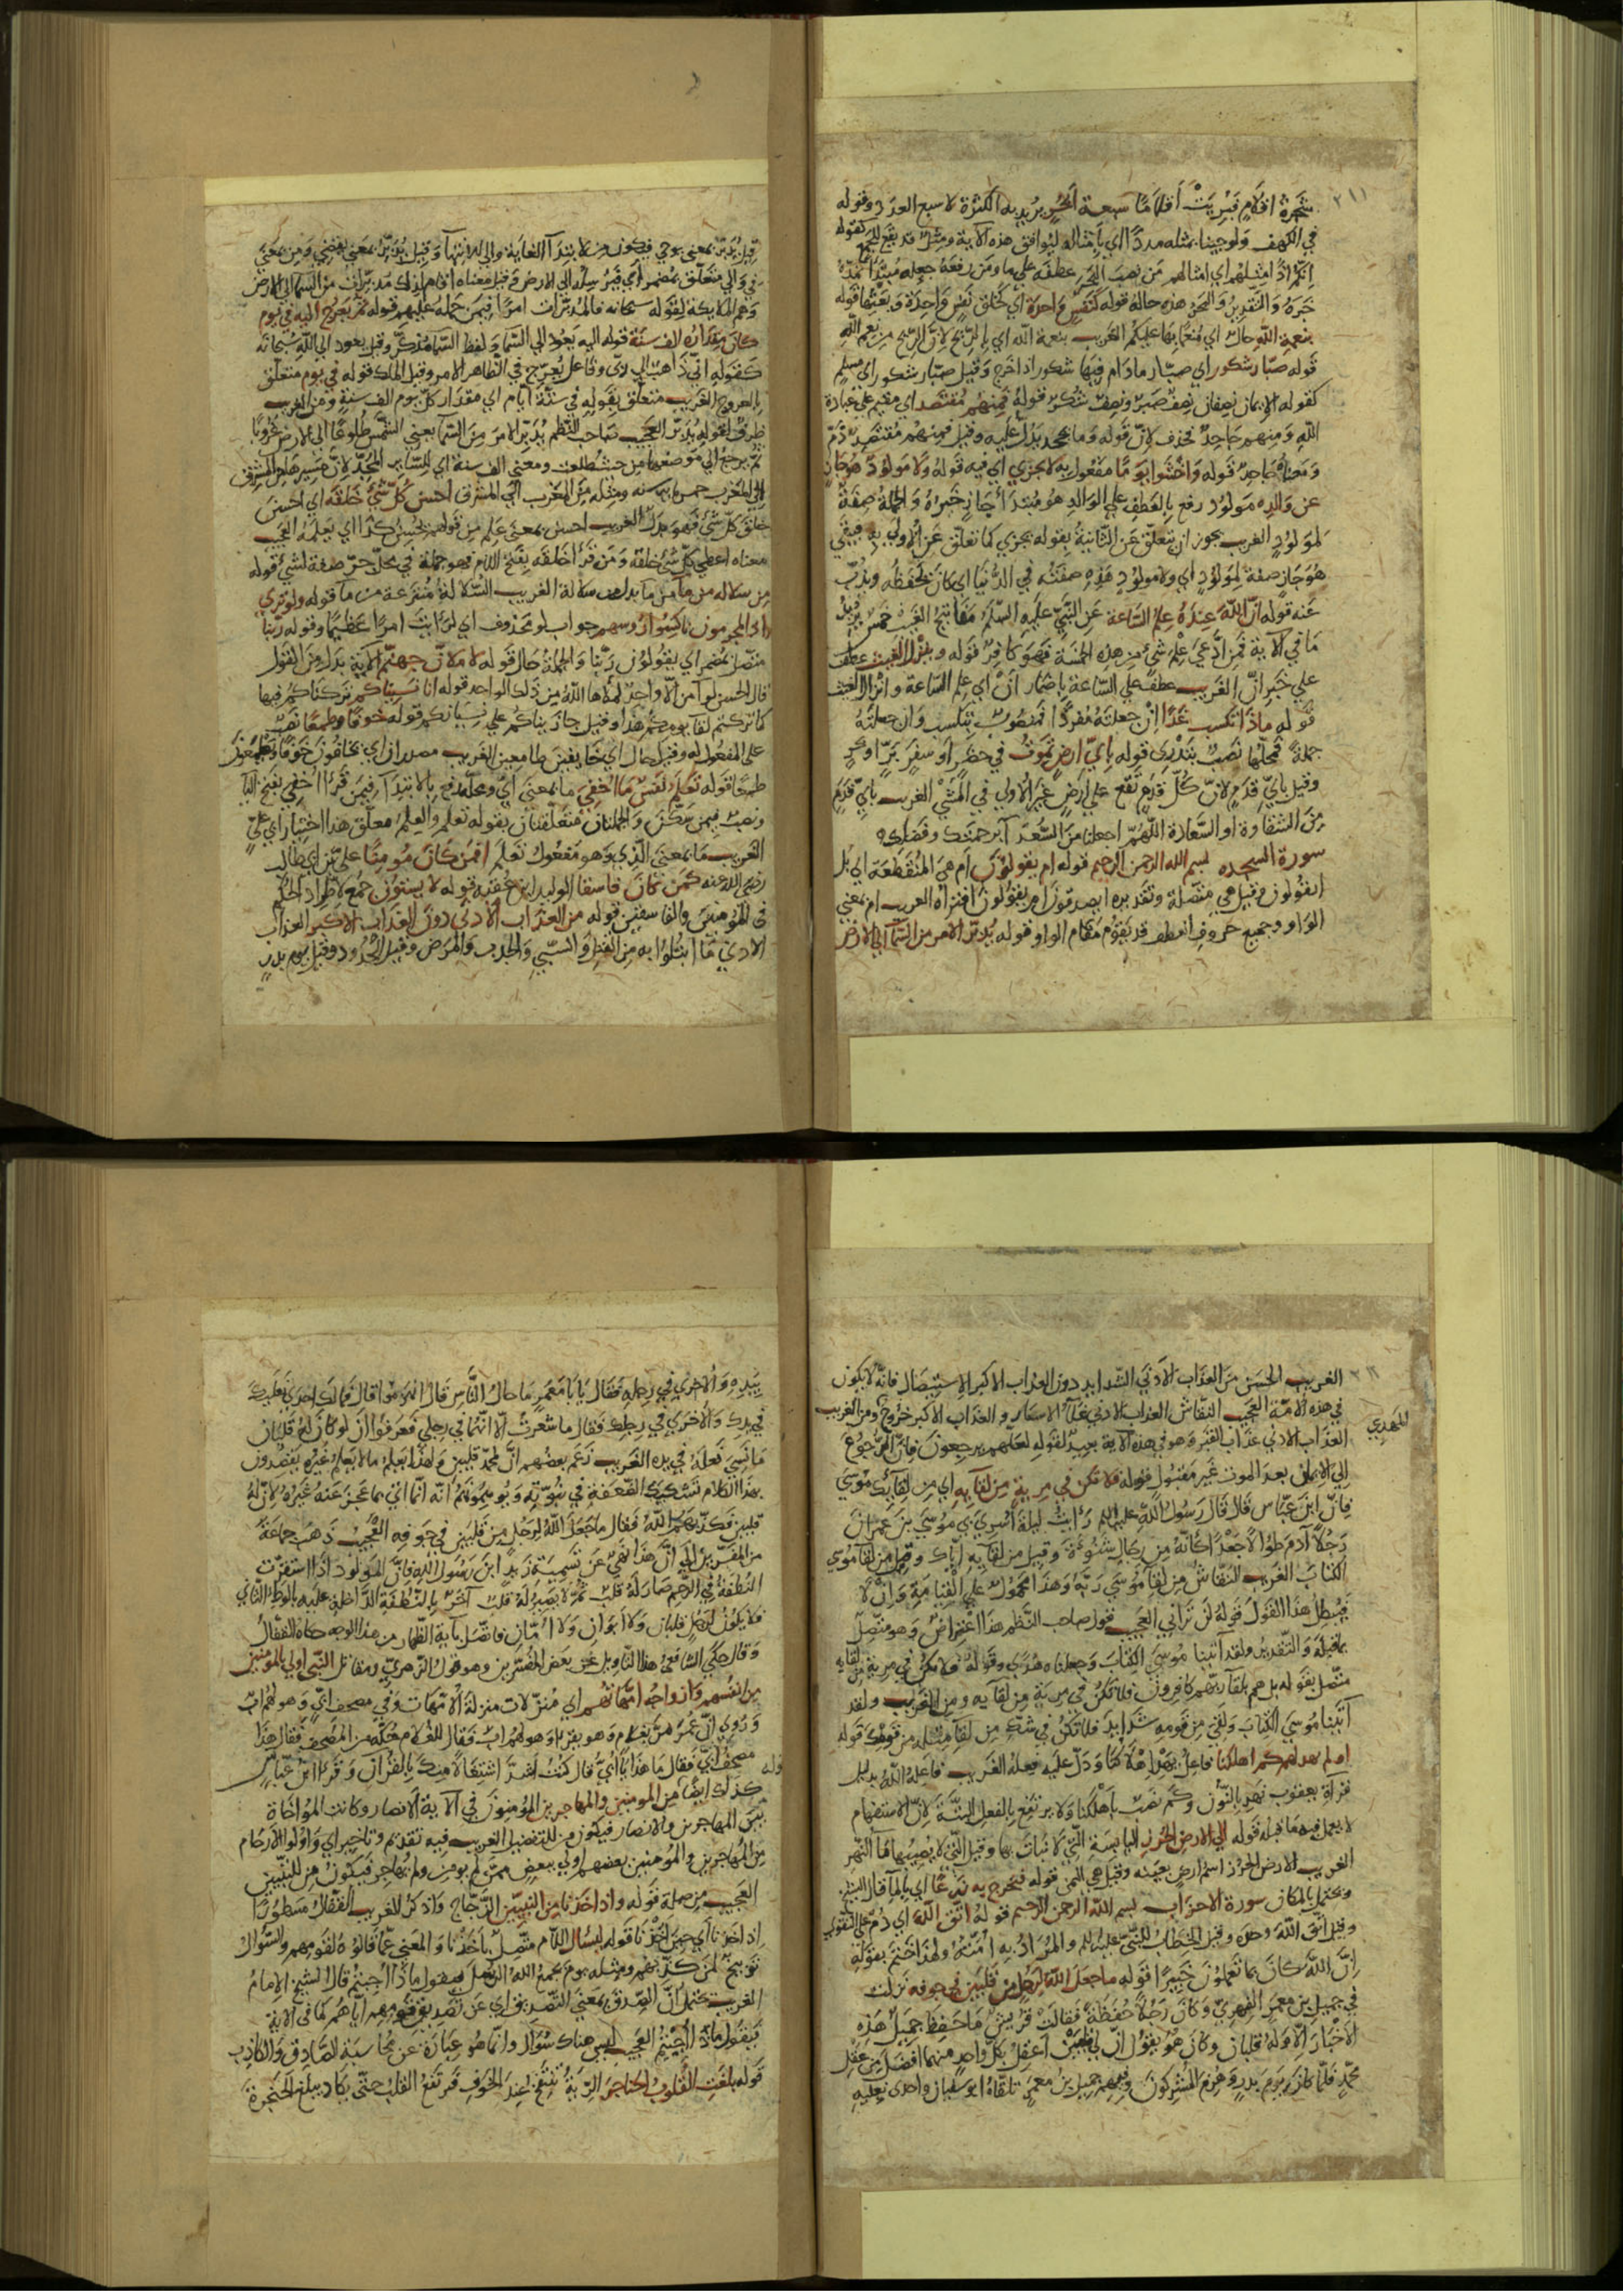 شجرة اقلام فبريت أقلامًا سبعة أبحر يريد به الكثرة لا سبع العدد وقوله
في الكهف ولو جئنا بمثله مددًا اي بأمثاله ليوافق هذه الآية ومثل قد يقع للجمع كقوله
انكم اذًا مثلهم اي امثالهم من نصب البحر عطفه على ما ومن رفعه جعله مبتدأ يمده
خبره والتقدير والبحر هذه حاله قوله كنفس واحدة اي كخلق نفس واحدة وبعثها قوله
بنعمة الله حال اي منعمًا بها عليكم الغريب بنعمة الله اي بالريح لان الريح من نعم الله
قوله صبار شكور اي صبار مادام فيها شكور اذا خرج وقيل صبار شكور اي مسلم
كقوله الايمان نصفان نصف صبر ونصف شكر قوله فمنهم مقتصد اي مقيم على عبادة
الله ومنهم جاحد فحذف لان قوله وما يجحد يدل عليه وقيل فمنهم مقتصد ذم
ومعناه جاحد قوله واخشوا يومًا مفعول به لا يجزي اي فيه قوله ولا مولود هو جاز
عن والده مولود رفع بالعطف على الوالد هو مبتدأ جاز خبره والجملة صفة
لمولود الغريب يجوز ان يتعلق عن الثانية بقوله يجزي كما تعلق عن الاولى به فيبقى
هو جاز صفة لمولود اي ولا مولود هذه صفته في الدنيا اي كان يحفظه ويذب
عنه قوله ان الله عنده علم الساعة عن النبي عليه السلم مفاتيح الغيب خمس يريد
ما في الآية فمن ادعى علم شيء من هذه الخمسة فهو كافر قوله وينزل الغيث عطف
على خبر ان الغريب عطف على الساعة باضمار أن اي علم الساعة وانزال الغيث
قوله ماذا تكسب غدًا ان جعلته مفردًا فمنصوب بتكسب وان جعلته
جملة فمحلها نصب بتدري قوله باي ارض تموت في حضر او سفر بر او بحر
وقيل باي قدم لان كل قدم تقع على ارض غير الاولى في المشي الغريب باي قدم
من الشقاوة او السعادة اللهم اجعلنا من السعدآ برحمتك وفضلك
سورة السجده بسم الله الرحمن الرحيم قوله ام يقولون أم هي المنقطعة اي بل
ايقولون وقيل هي متصلة وتقديره ايصدقون ام يقولون افتراه الغريب ام بمعنى
الواو وجميع حروف العطف قد يقوم مقام الواو قوله يدبر الامر من السمآ الى الارض
قيل يدبر بمعنى يوحي فيكون من لابتدآ الغاية والى لانتهآ وقيل يدبر بمعنى يقضي ومن بمعنى
في والى متعلق بمضمر اي خبر يرسله الى الارض وقيل معناه
وهم الملايكة لقوله سبحانه فالمدبرات امرًا فيمن حمله عليهم قوله ثم يعرج اليه في يوم
كان مقداره الف سنة قوله اليه يعود الى السما ولفظ السما مذكر وقيل يعود الى الله سبحانه
كقوله اني ذاهب الى ربي وفاعل يعرج في الظاهر الامر وقيل الملك قوله في يوم متعلق
بالعروج الغريب متعلق بقوله في ستة ايام اي مقدار كل يوم الف سنة ومن الغريب
ظرف لقوله يدبر العجيب صاحب النظم يدبر الامر من السمآ يعني الشمس طلوعًا الى الارض غروبًا
ثم يرجع الى موضعها من حيث طلعت ومعنى الف سنة اي للساير المجد لان مسيرها من المشرق
الى المغرب خمس مايه سنه ومثله من المغرب الى المشرق احسن كل شيء خلقه اي احسن
خلق كل شيء فهو بدل الغريب احسن بمعنى علم من قولهم يحسن كذا اي يعلمه العجيب
معناه اعطى كل شيء خلقه ومن قرأ خلقه بفتح اللام فهو جملة في محل جر صفة لشيء قوله
من سلاله من مآ من مآ بدل من سلالة الغريب السلالة منتزعة من مآ قوله ولو ترى
اذ المجرمون ناكسوا رؤسهم جواب لو محذوف اي لرأيت امرًا عظيمًا وقوله ربنا
متصل بمضمر اي يقولون ربنا والجملة حال قوله لاملان جهنم الآية بدل من القول
قال الحسن لو آمن الا واحد لملأها الله من ذلك الواحد قوله انا نسيناكم تركناكم فيها
كما تركتم لقآ يومكم هذا وقيل جازيناكم على نسيانكم قوله خوفًا وطمعًا نصب
على المفعول له وقيل حال اي خايفين طامعين الغريب مصدران اي يخافون خوفًا ويطمعون
طمعًا قوله تعلم نفس ما اخفي ما بمعنى أي ومحله رفع بالابتدآ فيمن قرأ اخفي بفتح اليآ
ونصب فيمن سكن والجملتان متعلقتان بقوله تعلم والعلم معلق هذا اختيار ابي علي
الغريب ما بمعنى الذي وهو مفعول تعلم افمن كان مومنًا علي بن ابي طالب
رضي الله عنه كمن كان فاسقا الوليد ابن عقبة قوله لا يستوون جمع لاطراد الحكم
في المؤمنين والفاسقين قوله من العذاب الادنى دون العذاب الاكبر العذاب
الادنى ما ابتلوا به من القتل والسبي والجدب والمرض وقيل الحدود وقيل يوم بدر
الغريب الحسن من العذاب الادنى الشدايد دون العذاب الاكبر الاستيصال فانه لا يكون
في هذه الامة العجيب النقاش العذاب الادنى غلآ الاسعار والعذاب الاكبر خروج ومن الغريب
المهدي
العذاب الادنى عذاب القبر وهو في هذه الآية بعيد لقوله لعلهم يرجعون فان الرجوع
الى الايمان بعد الموت غير مقبول قوله فلا تكن في مرية من لقايه اي من لقايك موسى
فان ابن عباس قال قال رسول الله عليه السلم رأيت ليلة أسري بي موسى بن عمران
رجلًا آدم طوالًا جعدًا كأنه من رجال شنوءة وقيل من لقايه اياك وقيل من لقا موسى
الكتاب الغريب النقاش من لقا موسى ربه وهذا محمول على القيامة وان لا
فيبطل هذا القول قوله لن تراني العجيب قول صاحب النظم هذا اعتراض وهو متصل
بما قبله والتقدير ولقد آتينا موسى الكتاب وجعلناه هدى وقوله فلا تكن في مرية من لقايه
متصل بقوله بل هم بلقآ ربهم كافرون فلا تكن في مرية من لقآيه ومن الغريب ولقد
آتينا موسى الكتاب ولقي من قومه شدايد فلا تكن في شك من لقآ مثله من قومك قوله
اولم يهد لهم كم اهلكنا فاعل يهد اهلاكنا ودل عليه فعله الغريب فاعله الله بدليل
قرآة يعقوب نهد بالنون وكم نصب بأهلكنا ولا يرتفع بالفعل البتة لان الاستفهام
لا يعمل فيه ما قبله قوله الى الارض الجرز اليابسة التي لا نبات بها وقيل التي لا يصيبها مآ النهر
الغريب الارض الجرز اسم ارض بعينه وقيل هي اليمن قوله فنخرج به زرعًا اي بالمآ
ويحتمل بالمكان سورة الاحزاب بسم الله الرحمن الرحيم قوله اتق الله اي دم على التقوى
وقيل اتق الله وحده وقيل الخطاب للنبي عليه السلم والمراد به امته ولهذا ختم بقوله
ان الله كان بما تعملون خبيرًا قوله ما جعل الله لرجل من قلبين في جوفه نزلت
في جميل بن معمر الفهري وكان رجلًا حفظة فقالت قريش ما حفظ جميل هذه
الاخبار الا وله قلبان وكان هو يقول ان لي قلبين اعقل بكل واحد منهما افضل من عقل
محمد فلما كان يوم بدر وهزم المشركون وفيهم جميل بن معمر تلقاه ابو سفيان واحدى نعليه
بيده والاخرى في رجله فقال يابا معمر ما حال الناس قال انهزموا قال فما لك احدى نعليك
في يدك والاخرى في رجلك فقال ما شعرت الا انهما في رجلي فعرفوا ان لو كان له قلبان
ما نسي نعله في يده الغريب زعم بعضهم ان لمحمد قلبين ولهذا يعلم مالا يعلم غيره يقصدون
بهذا الكلام تشكيك الضعفة في نبوته ويوهمونهم انه انما اتى بما عجز عنه غيره لان له
قلبين فكذبهم الله فقال ما جعل الله لرجل من قلبين في جوفه العجيب ذهب جماعة
من المفسرين الى ان هذا نهي عن تسمية زيد ابن رسول الله فان المولود اذا استقرت
النطفة في الرحم صار له قلب ثم لا يصير له قلب آخر بالنطفة الداخلة عليه بالوطء الثاني
فلا يكون لرجل قلبان ولا أبوان ولا أمان فاتصل بآية الظهار من هذا الوجه حكاه القفال
وقال حكى الشافعي هذا التاويل عن بعض المفسرين وهو قول الزهري ومقاتل النبي اولى بالمؤمنين
من انفسهم وازواجه امهاتهم اي منزلات منزلة الامهات وفي مصحف ابي وهو لهم اب
وروي ان عمر مر بغلام وهو يقرأ وهو لهم اب فقال للغلام حكه من المصحف فقال هذا
مصحف أبي فقال ما هذا يا أبي قال كنت اشد اشتغالًا منك بالقرآن وقرا ابن عباس
كذلك ايضًا من المومنين والمهاجرين المؤمنون في الآية الانصار وكانت المؤاخاة
بين المهاجرين والانصار فيكون من للتفضيل الغريب فيه تقديم وتاخير اي واولوا الارحام
من المهاجرين والمؤمنين بعضهم اولى ببعض ممن لم يومن ولم يهاجر فيكون من للتبيين
العجيب من صلة قوله واذ اخذنا من النبيين الزجاج واذكر الغريب القفال مسطورًا
اذ اخذنا أي حين اخذنا قوله ليسئال اللام متصل باخذنا والمعنى عما قالوه لقومهم والسؤال
توبيخ لمن كذبهم ومثله يوم يجمع الله الرسل فيقول ماذا أجبتم قال الشيخ الامام
الغريب يحتمل ان الصدق بمعنى التصديق اي عن تصديق قومهم اياهم كما في الآية
فيقول ماذا أجبتم العجيب ليس هناك سؤال وانما هو عبارة عن محاسبة الصادق والكاذب
قوله بلغت القلوب الحناجر الرئة تنتفخ عند الخوف فترتفع القلب حتى يكاد يبلغ الحنجرة